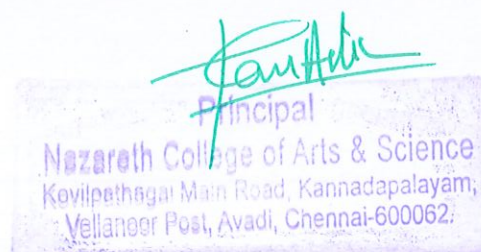 Principal
Nazareth College of Arts & Science
Kovilpathagai Main Road, Kannadapalayam,
Vellanoor Post, Avadi, Chennai-600062.